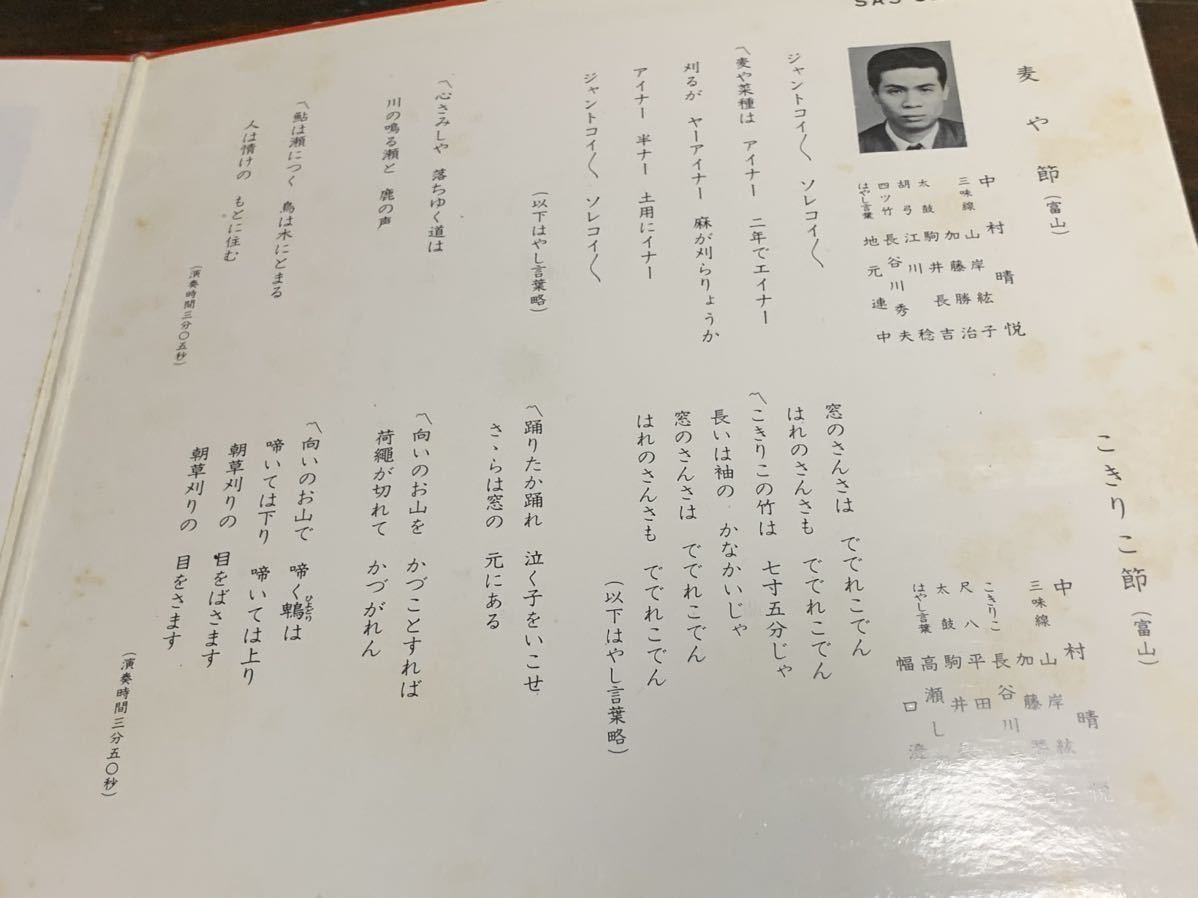 麦や節(富山)
中村晴悦
三味線 山岸絃子
加藤勝治
太鼓 駒井長吉
胡弓 江川稔
四ツ竹 長谷川秀夫
はやし言葉 地元連中
ジャントコイ〱 ソレコイ〱
〽麦や菜種は アイナー 二年でエイナー
刈るが ヤーアイナー 麻が刈らりょうか
アイナー 半ナー 土用にイナー
ジャントコイ〱 ソレコイ〱
(以下はやし言葉略)
〽心さみしや 落ちゆく道は
川の鳴る瀬と 鹿の声
〽鮎は瀬につく 鳥は木にとまる
人は情けの もとに住む
(演奏時間三分〇五秒)
こきりこ節(富山)
中村晴悦
三味線 山岸絃
加藤
こきりこ 長谷川
尺八 平田
太鼓 駒井
はやし言葉 高瀬し
幅口澄
窓のさんさは ででれこでん
はれのさんさも ででれこでん
〽こきりこの竹は 七寸五分じゃ
長いは袖の かなかいじゃ
窓のさんさは ででれこでん
はれのさんさも ででれこでん
(以下はやし言葉略)
〽踊りたか踊れ 泣く子をいこせ
さゝらは窓の 元にある
〽向いのお山を かづことすれば
荷縄が切れて かづがれん
〽向いのお山で 啼く鵯は
ひよどり
啼いては下り 啼いては上り
朝草刈りの 目をばさます
朝草刈りの 目をさます
(演奏時間三分五〇秒)